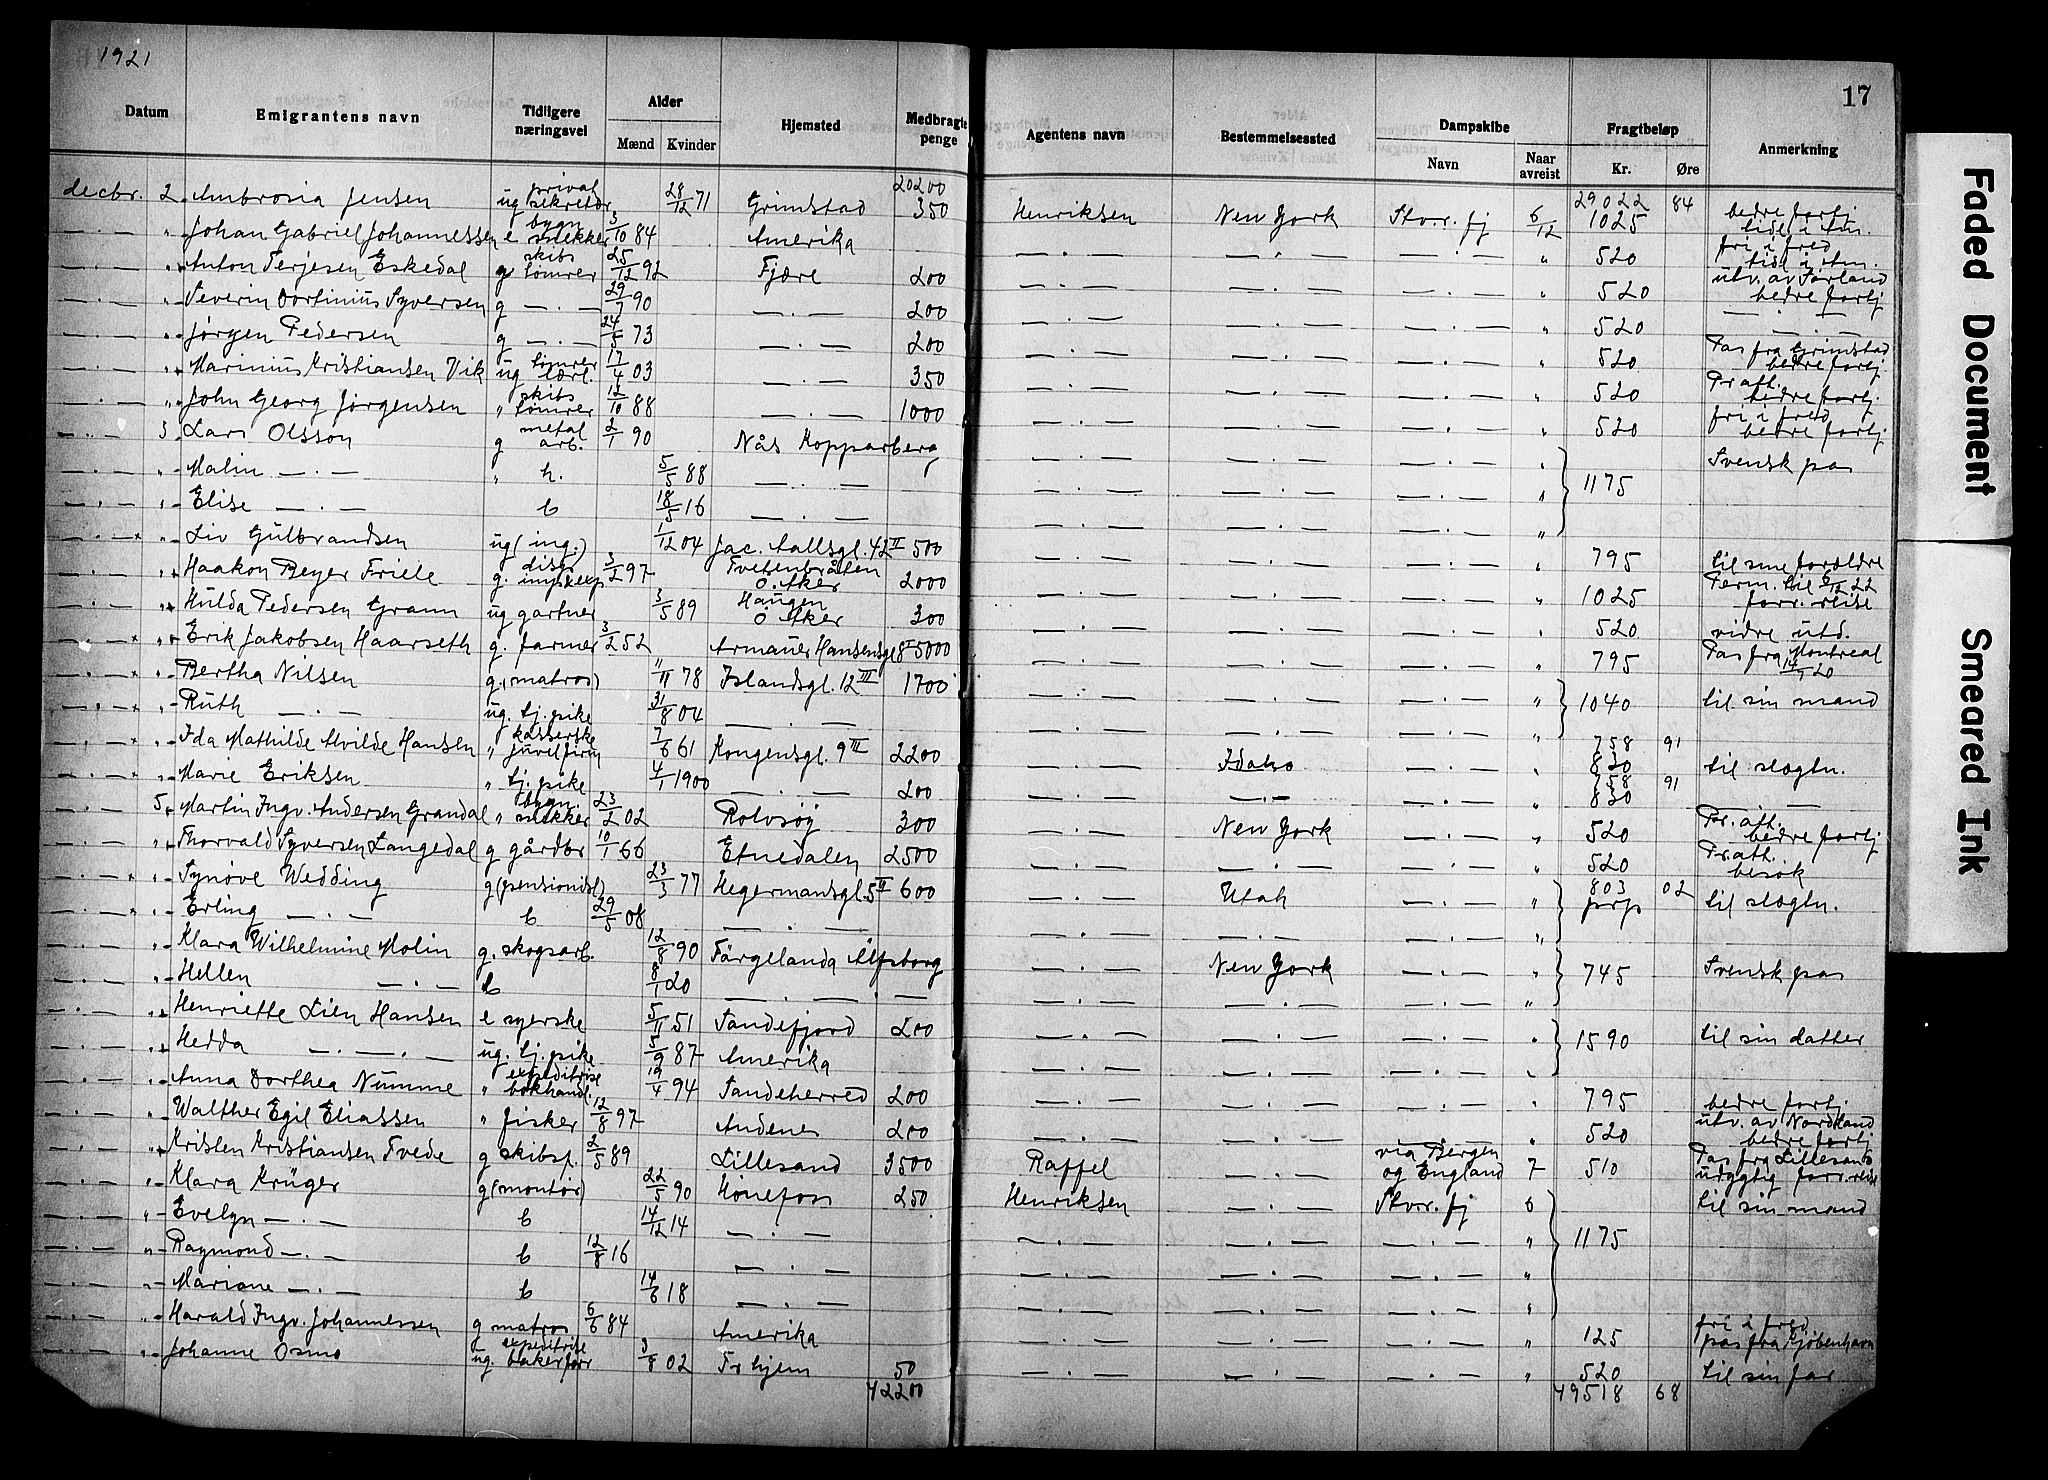 1921
17
Datum Emigrantens navn Tidligere næringsvei Alder Mænd Kvinder Hjemsted Medbragte penge Agentens navn Bestemmelsessted Dampskibe Navn Naar avreist Fragtbeløp Kr. Øre Anmerkning
20200 29022 84
decbr. 2 Ambrosia Jensen ug privat sekretær 28/12 71 Grimstad 350 Henriksen New York Stvr. fj 6/12 1025 bedre fortj
— . — " Johan Gabriel Johannessen e bygn snekker 3/10 84 Amerika — . — — . — — . — " 520 tidl. i Am. fri i fred
— . — " Anton Terjesen Eskedal g skibs tømrer 25/12 92 Fjære 200 — . — — . — — . — " 520 tidl i Am. utv. av Sørland
— . — " Severin Dortinius Syversen g — . — 29/7 90 — . — 200 — . — — . — — . — " 520 bedre fortj
— . — " Jørgen Pedersen g — . — 24/5 73 — . — 200 — . — — . — — . — " 520 — . —
— . — " Marinius Kristiansen Vik ug tømrer lærl. 17/4 03 — . — 350 — . — — . — — . — " 520 Pas fra Grimstad bedre fortj.
— . — " John Georg Jørgensen " skibs tømrer 12/10 88 — . — 1000 — . — — . — — . — " 520 Pr. att. bedre fortj.
— . — 3 Lars Olsson g metal arb. 2/1 90 Nås Kopparberg — . — — . — — . — " fri i fred bedre fortj
— . — " Malin — . — " h. 5/5 88 — . — — . — — . — — . — " 1175 Svensk pas
— . — " Elise — . — b 18/5 16 — . — — . — — . — — . — "
— . — " Liv Gulbrandsen ug (ing.) 1/12 04 Jac. Aallsgt. 42 II 500 — . — — . — — . — " 795 til sine forældre
— . — " Haakon Beyer Friele g. disp. 3/2 97 Tvetenbråten Ø. Aker 2000 — . — — . — — . — " 1025 Perm. til 6/12 22 forr. reise
— . — " Hulda Pedersen Grann ug gartner 3/5 89 Haugen Ø Aker 300 — . — — . — — . — " 520 vidre utd.
— . — " Erik Jakobsen Haarseth g. farmer 3/2 52 Armauer Hansensgt 8 5000 — . — — . — — . — " 795 Pas fra Montreal 14/7 20
— . — " Bertha Nilsen g. (matros) "/11 78 Islandsgt. 12 III 1700 — . — — . — — . — " 1040 til sin mand
— . — " Ruth — . — ug. tj. pike 31/8 04 — . — — . — — . — — . — "
— . — " Ida Mathilde Hvilde Hansen " kasserske juvelfirm 7/6 61 Kongensgt. 9 III 2200 — . — Idaho — . — " 758 91 830 til slegtn.
— . — " Marie Eriksen " tj. pike 4/1 1900 — . — 200 — . — — . — — . — " 758 91 830 —
— . — 5 Martin Ingv. Andersen Grandal " bygn. snekker 23/2 02 Rolvsøy 300 — . — New York — . — " 520 Pr. att. bedre fortj
— . — " Thorvald Syversen Langedal g gårdbr 10/1 66 Etnedalen 2500 — . — — . — — . — " 520 Pr. att. besøk
— . — " Synøve Wedding g (pensionist) 23/3 77 Hegermandsgt. 5 II 600 — . — Utah — . — " 803 02 til slegtn.
— . — " Erling — . — b 29/5 08 — . — — . — — . — — . — "
— . — " Klara Wilhelmine Molin g. skogsarb. 12/8 90 Färgelanda Älfsborg — . — New York — . — " 745 Svensk pas
— . — " Hellen — . — b 8/1 20 — . — — . — — . — — . — "
— . — " Henriette Lien Hansen e syerske 5/11 51 Sandefjord 200 — . — — . — — . — " 1590 til sin datter
— . — " Hedda — . — . — ug. tj. pike 5/9 87 Amerika — . — — . — — . — "
— . — " Anna Dorthea Numme " expeditrise bokhandl. 19/4 94 Sandeherred 200 — . — — . — — . — " 795 bedre fortj.
— . — " Walther Egil Eliassen " fisker 12/8 97 Andenes 200 — . — — . — — . — " 520 utv. av Nordland bedre fortj
— . — " Kristen Kristiansen Tvede g skibsf. 2/5 89 Lillesand 3500 Raffel — . — via Bergen og England 7 510 Pas fra Lillesand udygtig forr. reise
— . — " Klara Krüger g (montør) 22/5 90 Hønefoss 250 Henriksen — . — Stvr. fj 6 til sin mand
— . — " Evelyn — . — b 14/12 14 — . — — . — — . — — . — " 1175
— . — " Raymond — . — b 12/8 16 — . — — . — — . — — . — "
— . — " Mariane — . — b 14/6 18 — . — — . — — . — — . — "
— . — " Harald Ingv. Johannessen g matros 6/6 84 Amerika — . — — . — — . — " 125 fri i fred pas fra Kjøbenhavn
— . — " Johanne Osmo ug. expeditrise bakerforr 3/8 02 Tr.hjem 50 — . — — . — — . — " 520 til sin far
42200 49518 68
Faded Document
Smeared Ink